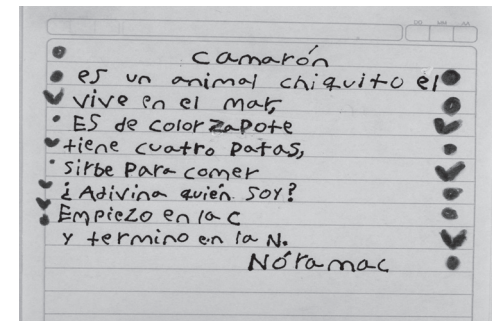 camarón
es un animal chiquito el
vive en el mar,
ES de color zapote
tiene cuatro patas,
sirbe para comer
¿Adivina quién soy?
Empiezo en la c
y termino en la N.
Nóramac